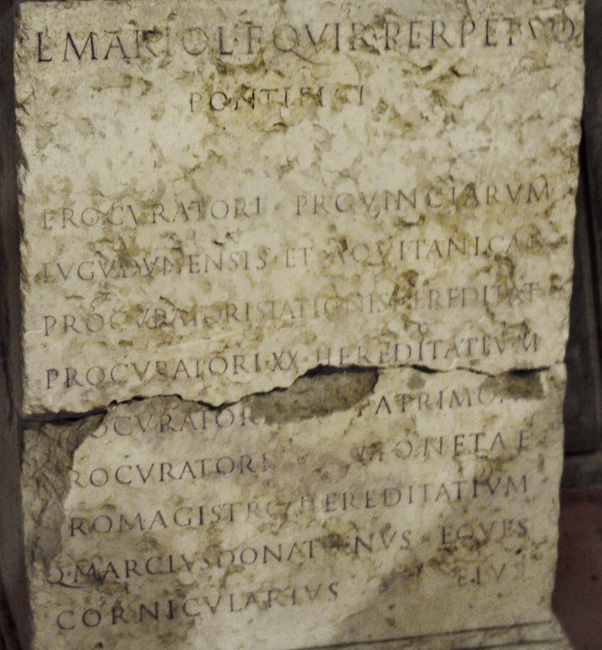 L·MARIO·L·F·QVIR·PERPETVO
PONTIFICI
PROCVRATORI PROVINCIARVM
LVGVDVNENSIS ET AQVITANICAE
PROCVRATORI STATIONIS HEREDITAT
PROCVRATORI·XX·HEREDITATIVM
OCVRATOR PATRIMO
ROCVRATORI ONETAE
ROMAGISTRO HEREDITATIVM
Q·MARCIVS DONAT NVS·EQVES
CORNICVLARIVS EIV